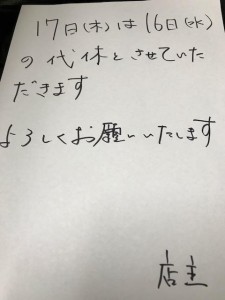 17日(木)は16日(水)
の代休とさせていた
だきます
よろしくお願いいたします
店主